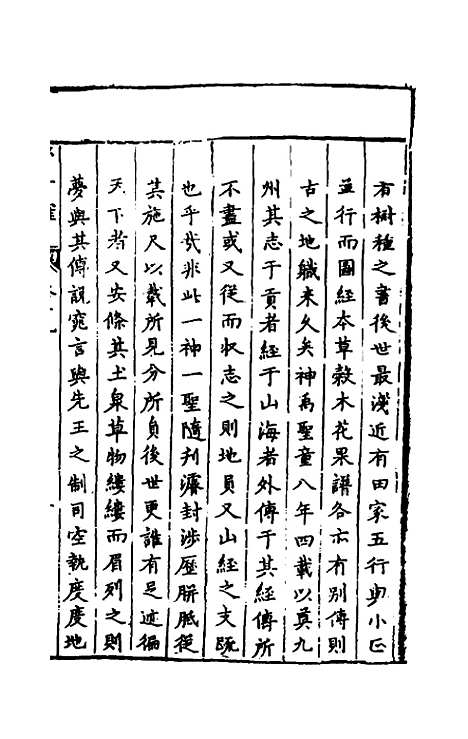 有樹種之書後世最淺近有田家五行與小正
並行而圖經本草穀木花果譜各亦有別傳則
古之地職來久矣神禹聖童八年四載以奠九
州其志于貢者經于山海者外傳于其經傳所
不盡或又從而收志之則地員又山經之支既
也乎哉非此一神一聖隨判濬封涉歷胼胝從
其施尺以載所見分所員後世更誰有足迹徧
天下者又安條其土泉草物縷縷而眉列之則
夢與其傳說寃言與先王之制司空執度度地